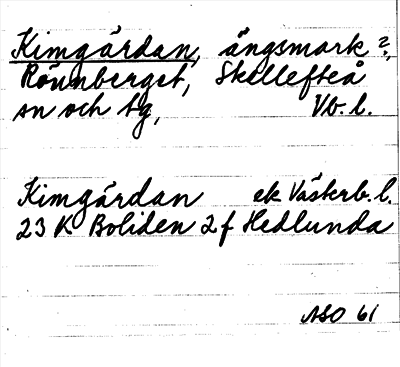 Kimgärdan, ängsmark?,
Rönnberget, Skellefteå
sn och tg, Vb. l.
Kimgärdan ek Västerb. l.
23 K Boliden 2 f Hedlunda
ASO 61